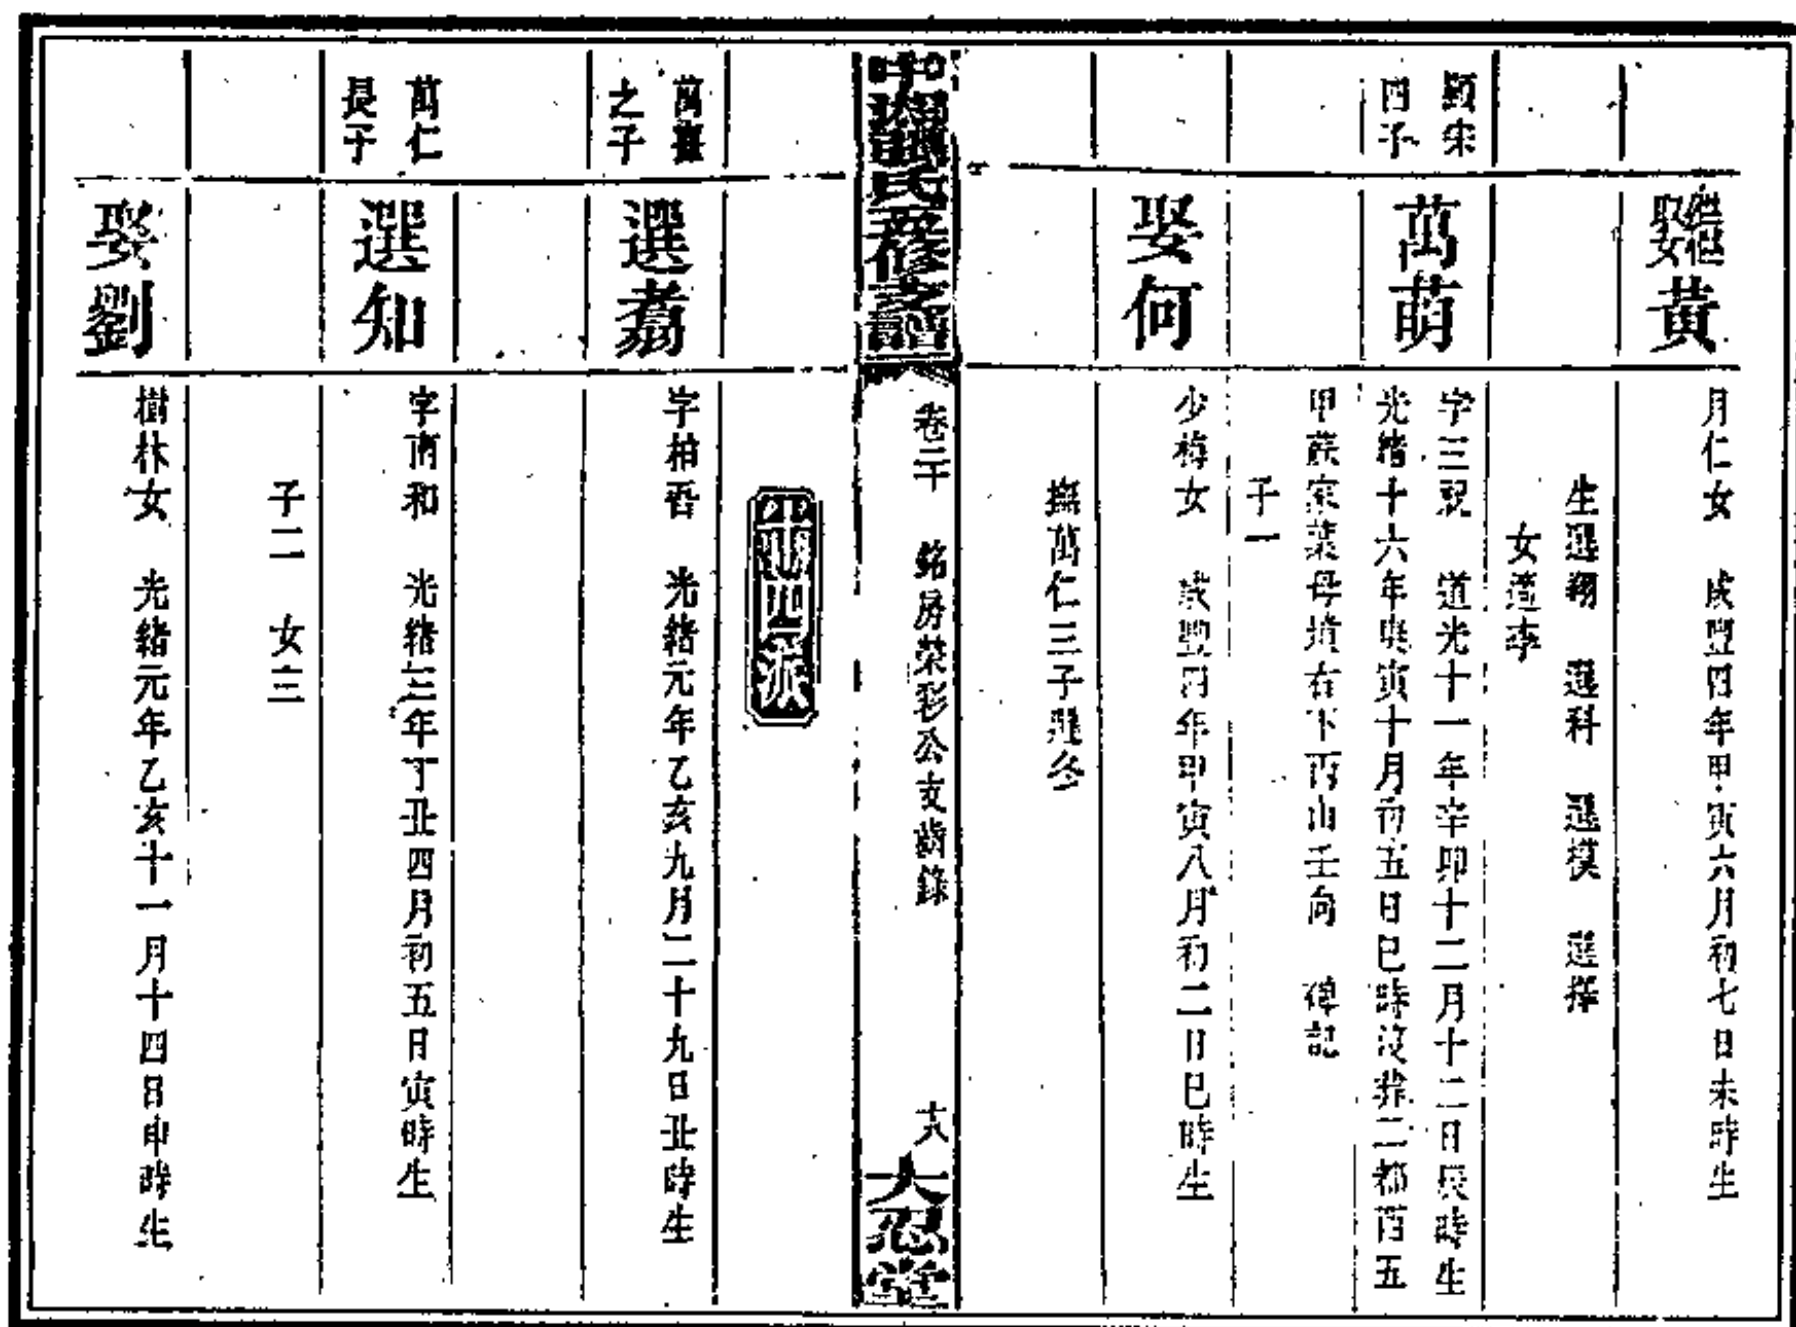 繼娶黃
月仁女 咸豐四年甲寅六月初七日未時生
生選翔 選科 選模 選擇
女適李
顯宋四子
萬萌
字三 道光十一年辛卯十二月十二日辰時生
光緒十六年庚寅十月初五日巳時沒葬二都百五
甲蔴家葉母墳右下丙山壬向 碑記
子一
娶何
少梅女 咸豐四年甲寅八月初二日巳時生
撫萬仁三子選冬
氏五修支譜
卷二十 銘房榮彩公支齒錄
十八
大忍堂
十四派
萬撫之子
選翥
字柏香 光緒元年乙亥九月二十九日丑時生
萬仁長子
選知
字南和 光緒三年丁丑四月初五日寅時生
子二 女三
娶劉
樹林女 光緒元年乙亥十一月十四日申時生